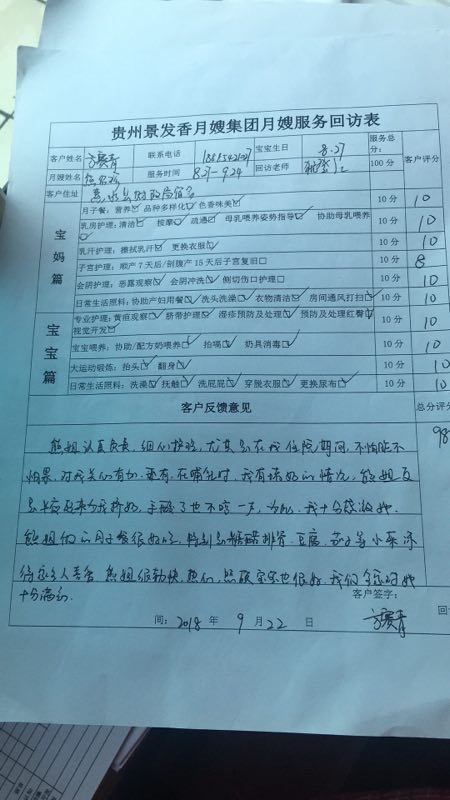 贵州景发香月嫂集团月嫂服务回访表
客户姓名 方赛青 联系电话 宝宝生日 8.27 服务总分: 客户评分
月嫂姓名 服务时间 8.27-9.24 回访老师 100分
客户住址
宝妈篇
月子餐:营养☑ 品种多样化☑ 色香味美☑ 10分 10
乳房护理:清洁☑ 按摩☑ 疏通☑ 母乳喂养姿势指导☑ 协助母乳喂养☑ 10分 10
乳汁护理:擦拭乳汗☑ 更换衣服☑ 10分 10
子宫护理:顺产7天后/剖腹产15天后子宫复旧□ 10分 8
会阴护理:恶露观察☑ 会阴冲洗☑ 侧切伤口护理□ 10分 10
日常生活照料:协助产妇用餐☑ 洗头洗澡☑ 衣物清洁☑ 房间通风打扫☑ 10分 10
宝宝篇
专业护理:黄疸观察☑ 脐带护理☑ 湿疹预防及处理☑ 预防及处理红臀☑ 视觉开发☑ 10分 10
宝宝喂养:协助/配方奶喂养☑ 拍嗝☑ 奶具消毒☑ 10分 10
大运动锻炼:抬头☑ 翻身☑ 10分 10
日常生活照料:洗澡☑ 抚触☑ 洗屁屁☑ 穿脱衣服☑ 更换尿布☑ 10分 10
客户反馈意见 总分评分
98
熊姐认真负责,细心护理,尤其是在我住院期间,不怕脏不
怕累,对我关心有加.还有,在哺乳时,我有堵奶的情况,熊姐
起来为我挤奶,手酸了也不吭一声,为此,我十分感激她.
熊姐做的月子餐很好吃,特别是糖醋排骨、豆腐、等小菜深
得家人喜爱.熊姐很勤快,热心,照顾宝宝也很好,我们全家对她
十分满意.
客户签字:
间: 2018 年 9 月 22 日 方赛青 回